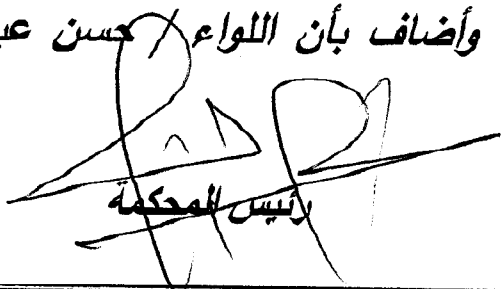 وأضاف بأن اللواء / حسن
رئيس المحكمة